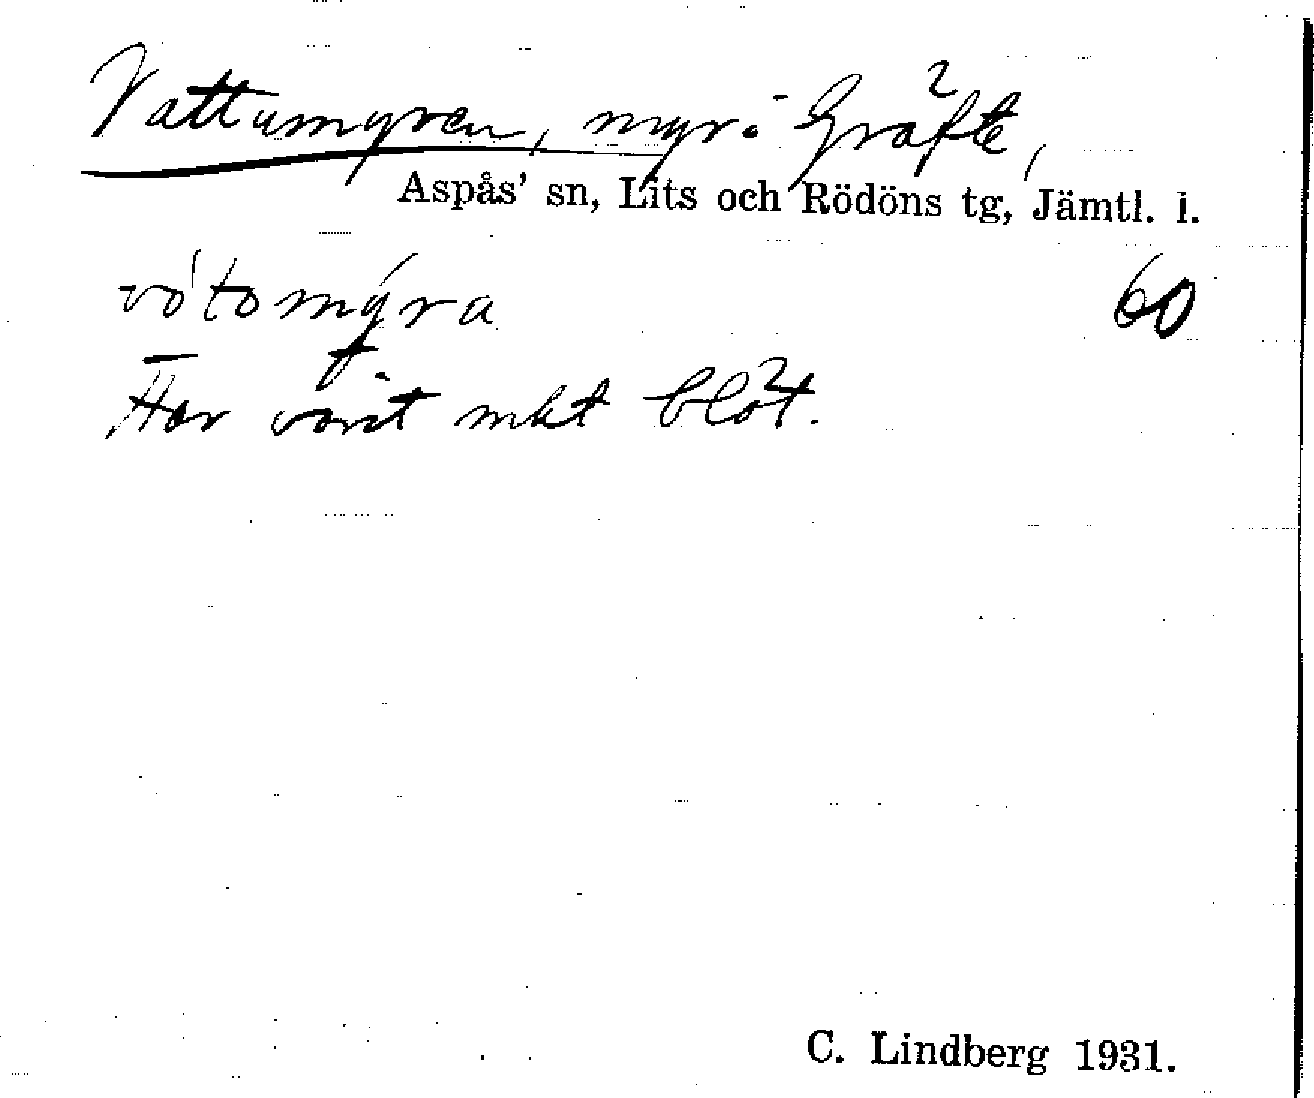 Vattumyren, myr i Gräfte,
Aspås' sn, Lits och Rödöns tg, Jämtl. l.
vò'tomýra 60
Har varit mkt blöt.
C. Lindberg 1931.